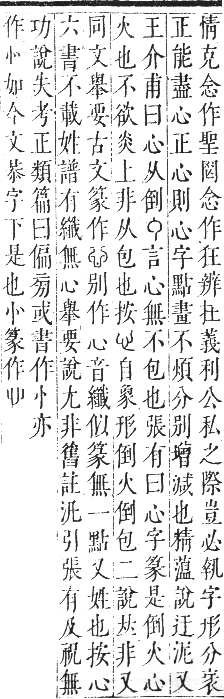 情克念作聖罔念作狂辨在義利公私之際豈必執字形分衺
正能盡心正心則心字點畫不煩分別增減也精薀說迂泥又
王介甫曰心从倒𠃉言心無不包也張有曰心字篆是倒火心
火也不欲炎上非从包也按心自象形倒火倒包二說𠀤非又
同文舉要古文篆作别作心音纖似篆無一點又姓也按心
六書不載姓譜有纖無心舉要說尤非舊註汎引張有及祝無
功說失考正類篇曰偏旁或書作忄亦
作⺗如今文恭字下是也小篆作